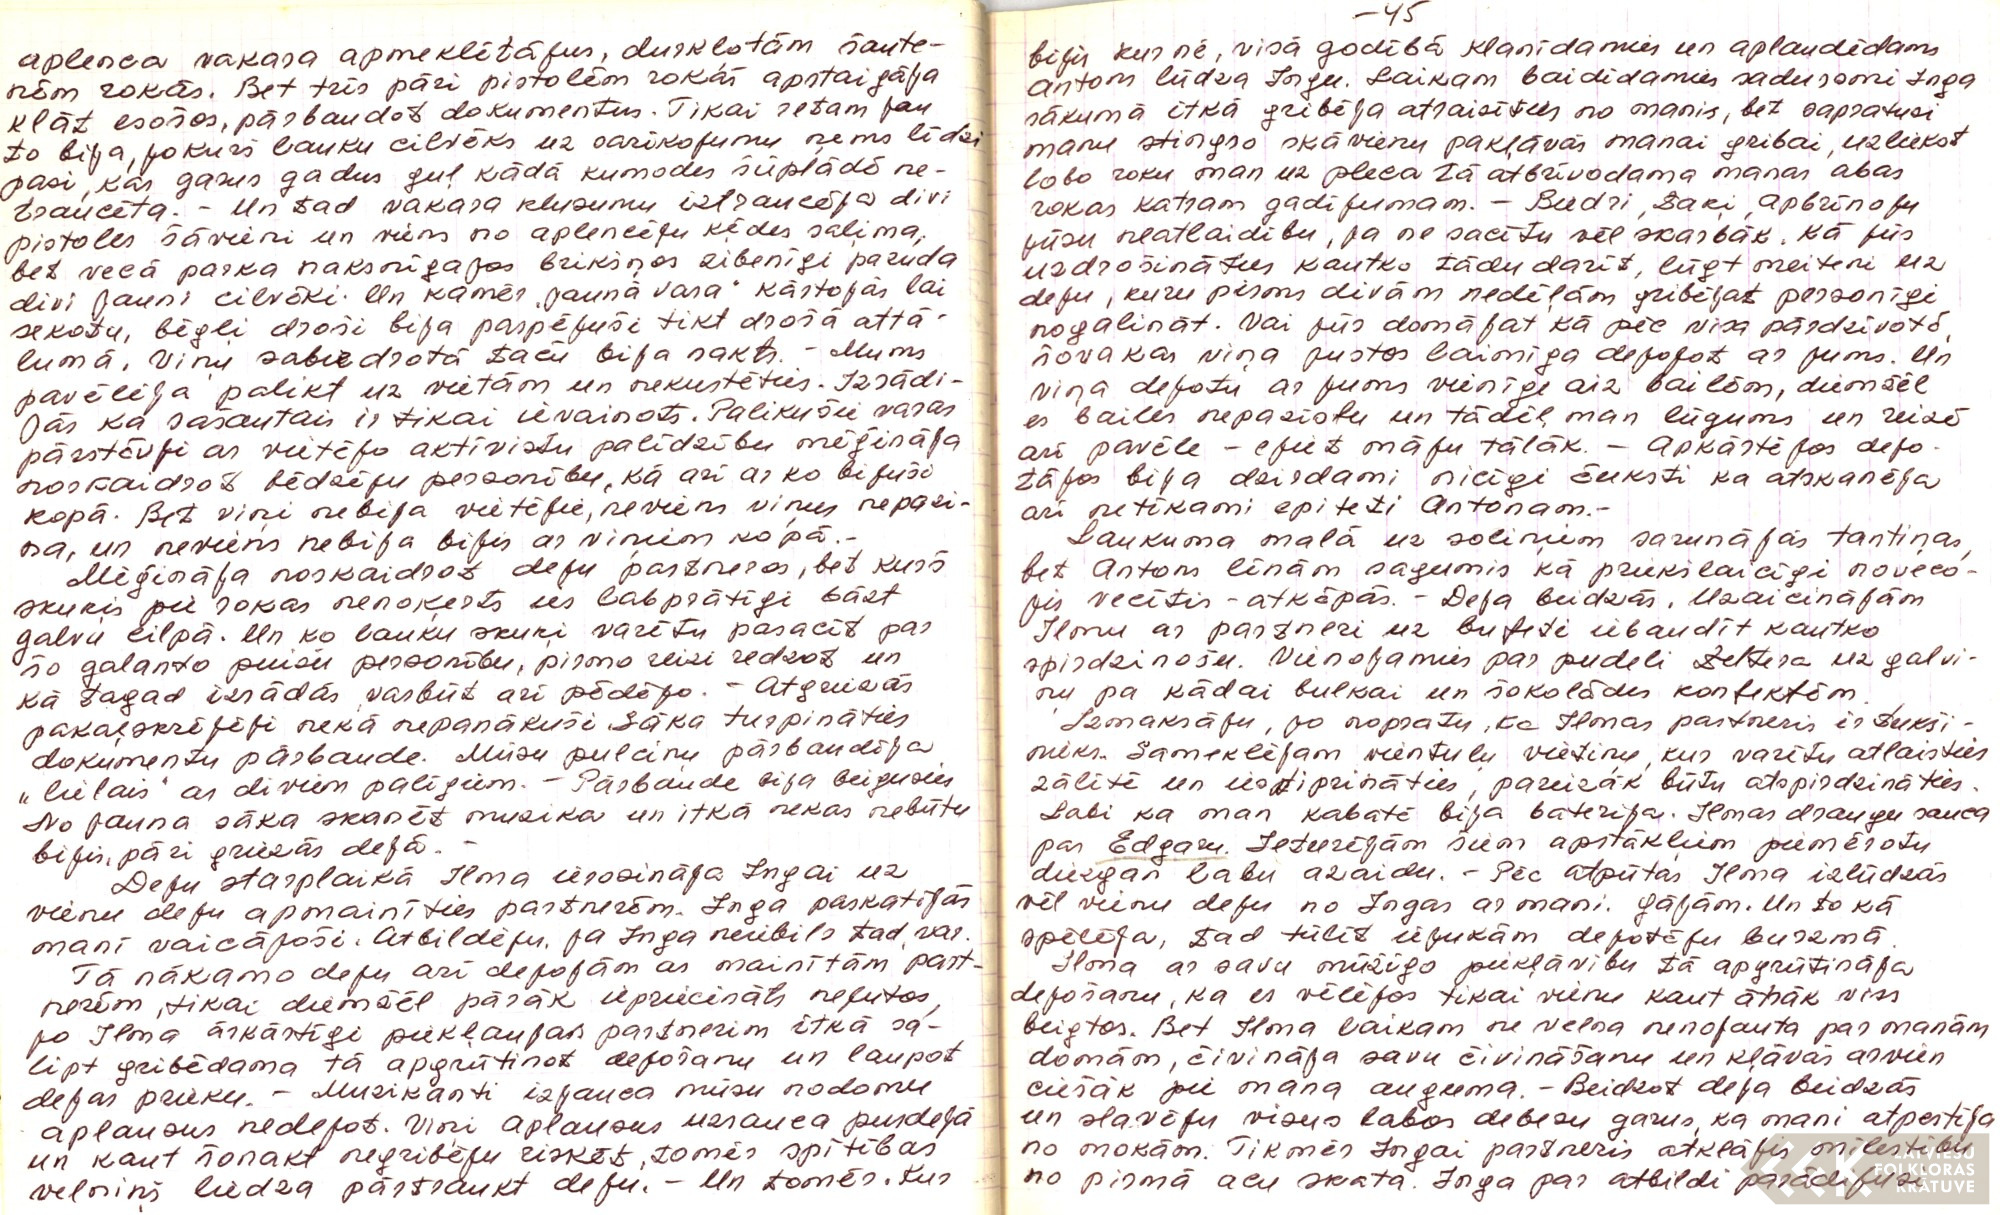 aplenca vakara apmeklētājus, durklotām šaute-
nēm rokās. Bet trīs pāri pistolēm rokās apstaigāja
klāt esošos, pārbaudot dokumentus. Tikai retam jau
to bija, jo kurš lauku cilvēks uz sarīkojumu ņems līdzi
pasi, kas garus gadus guļ kādā kumodes šūplādē ne-
traucēta. – Un tad vakara klusumu iztraucēja divi
pistoles šāvieni un viens no aplencēju ķēdes salima,
bet vecā parka naksnīgajos brikšņos zibenīgi pazuda
divi jauni cilvēki. Un kamēr "jaunā vara" kārtojās lai
sekotu, bēgļi droši bija paspējuši tikt drošā attā-
lumā. Viņu sabiedrotā taču bija nakts. – Mums
pavēlēja palikt uz vietām un nekustēties. Izrādī-
jās ka sašautais ir tikai ievainots. Palikušie varas
pārstāvji ar vietējo aktīvistu palīdzību mēģināja
noskaidrot bēdzēju personību, kā arī ar ko bijuši
kopā. Bet viņi nebija vietējie, neviens viņus nepazi-
na, un neviens nebija bijis ar viņiem kopā. –
Mēģināja noskaidrot deju partneros, bet kurš
skuķis pie rokas nenoķerts ies labprātīgi bāzt
galvu cilpā. Un ko lauku skuķi varētu pasacīt par
šo galanto puišu personību, pirmo reizi redzot un
kā tagad izrādās varbūt arī pēdējo. – Atgriezās
pakaļskrējēji nekā nepanākuši Sāka turpināties
dokumentu pārbaude. Mūsu pulciņu pārbaudīja
"lielais" ar diviem palīgiem. – Pārbaude bija beigusies
No jauna sāka skanēt muzika un itkā nekas nebūtu
bijis, pāri griezās dejā. –
Deju starplaikā Ilma ierosināja Ingai uz
vienu deju apmainīties partnerēm. Inga paskatījās
manī vaicājoši. Atbildēju, ja Inga neiebils tad var.
Tā nākamo deju arī dejojām ar mainītām part-
nerēm, tikai diemžēl pārāk iepriecināts nejutos,
jo Ilma ārkārtīgi piekļaujas partnerim itkā sa-
lipt gribēdama tā apgrūtinot dejošanu un laupot
dejas prieku. – Muzikanti izjauca mūsu nodomu
aplausus nedejot. Viņi aplausus uzsauca pusdejā
un kaut šonakt negribēju riskēt, tomēr spītības
velniņš liedza pārtraukt deju. – Un tomēr. Kur
– 45
bijis kur nē, visā godībā klanīdamies un aplaudēdams
Antons lūdza Ingu. Laikam baidīdamies sadursmi Inga
sākumā itkā gribēja atraisīties no manis, bet sapratusi
manu stingro skāvienu pakļāvās manai gribai, uzliekot
labo roku man uz pleca tā atbrīvodama manas abas
rokas katram gadījumam. – Biedri, Saki, apbrīnoju
jūsu neatlaidību, ja ne sacītu vēl skarbāk. Kā jūs
uzdrošināties kautko tādu darīt, lūgt meiteni uz
deju, kuru pirms divām nedēļām gribējat personīgi
nogalināt. Vai jūs domājat kā pēc visa pārdzīvotā,
šovakar viņa justos laimīga dejojot ar jums. Un
viņa dejotu ar jums vienīgi aiz bailēm, diemžēl
es bailes nepazīstu un tādēļ man lūgums un reizē
arī pavēle – ejiet māju tālāk. – Apkārtējos dejo-
tājos bija dzirdami nicīgi čuksti ka atskanēja
arī netīkami epiteti Antonam. –
Laukuma malā uz soliņiem sarunājās tantiņas,
bet Antons līnām sagumis kā priekšlaicīgi noveco-
jis vecītis – atkāpās. – Deja beidzās. Uzaicinājām
Ilmu ar partneri uz bufeti iebaudīt kautko
spirdzinošu. Vienojamies par pudeli Zeltera uz galvi-
ņu pa kādai bulkai un šokolādes konfektēm.
Izmaksāju, jo nopratu, ka Ilmas partneris ir tukši-
nieks. Sameklējam vientuļu vietiņu, kur varētu atlaisties
zālītē un iestiprināties, pareizāk būtu atspirdzināties.
Labi ka man kabatē bija baterija. Ilmas draugu sauca
par Edgaru. Ieturējām šiem apstākļiem piemērotu
diezgan labu azaidu. – Pēc atpūtas Ilma izlūdzās
vēl vienu deju no Ingas ar mani. Gājām. Un to kā
spēlēja, tad tūlīt iejukām dejotāju burzmā.
Ilma ar savu mūžīgo piekļāvību tā apgrūtināja
dejošanu, ka es vēlējos tikai vienu kaut ātrāk viss
beigtos. Bet Ilma laikam ne velna nenojauta par manām
domām, čivināja savu čivināšanu un kļāvās arvien
ciešāk pie mana auguma. – Beidzot deja beidzās
un slavēju visus labos debesu garus, ka mani atpestīja
no mokām. Tikmēr Ingai partneris atklājis mīlestību
no pirmā acu skata. Inga par atbildi parādījusi
LATVIEŠU
FOLKLORAS
KRĀTUVE